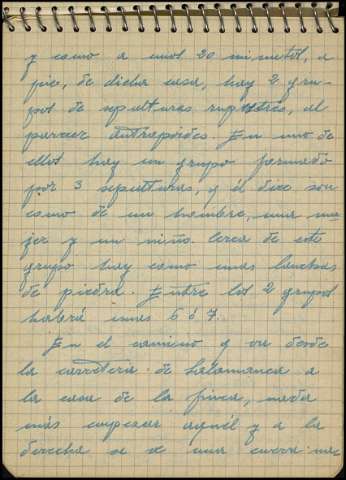 y como a unos 20 minutos, a
pie, de dicha casa, hay 2 gru-
pos de sepulturas rupestres, al
parecer antropoides. En uno de
ellos hay un grupo formado
por 3 sepulturas, y él dice son
como de un hombre, una mu
jer y un niño. Cerca de este
grupo hay como unas lanchas
de piedra. Entre los 2 grupos
habrá unas 6 ó 7.
En el camino q va desde
la carretera de Salamanca a
la casa de la finca, nada
más empezar aquél y a la
derecha se ve una